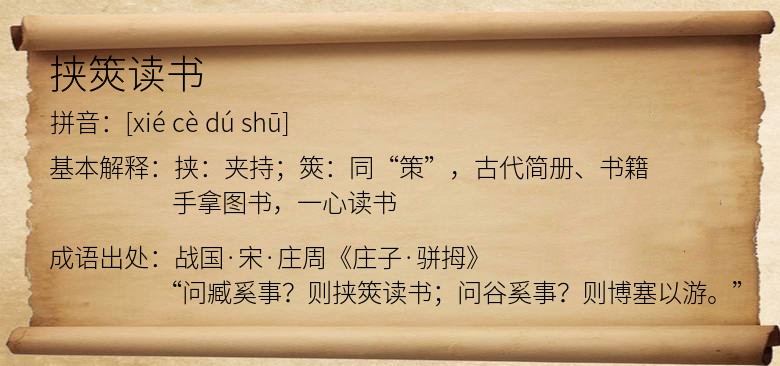 挟筴读书
拼音：[xié cè dú shū]
基本解释：挟：夹持；筴：同“策”，古代简册、书籍
手拿图书，一心读书
成语出处：战国·宋·庄周《庄子·骈拇》
“问臧奚事？则挟筴读书；问谷奚事？则博塞以游。”